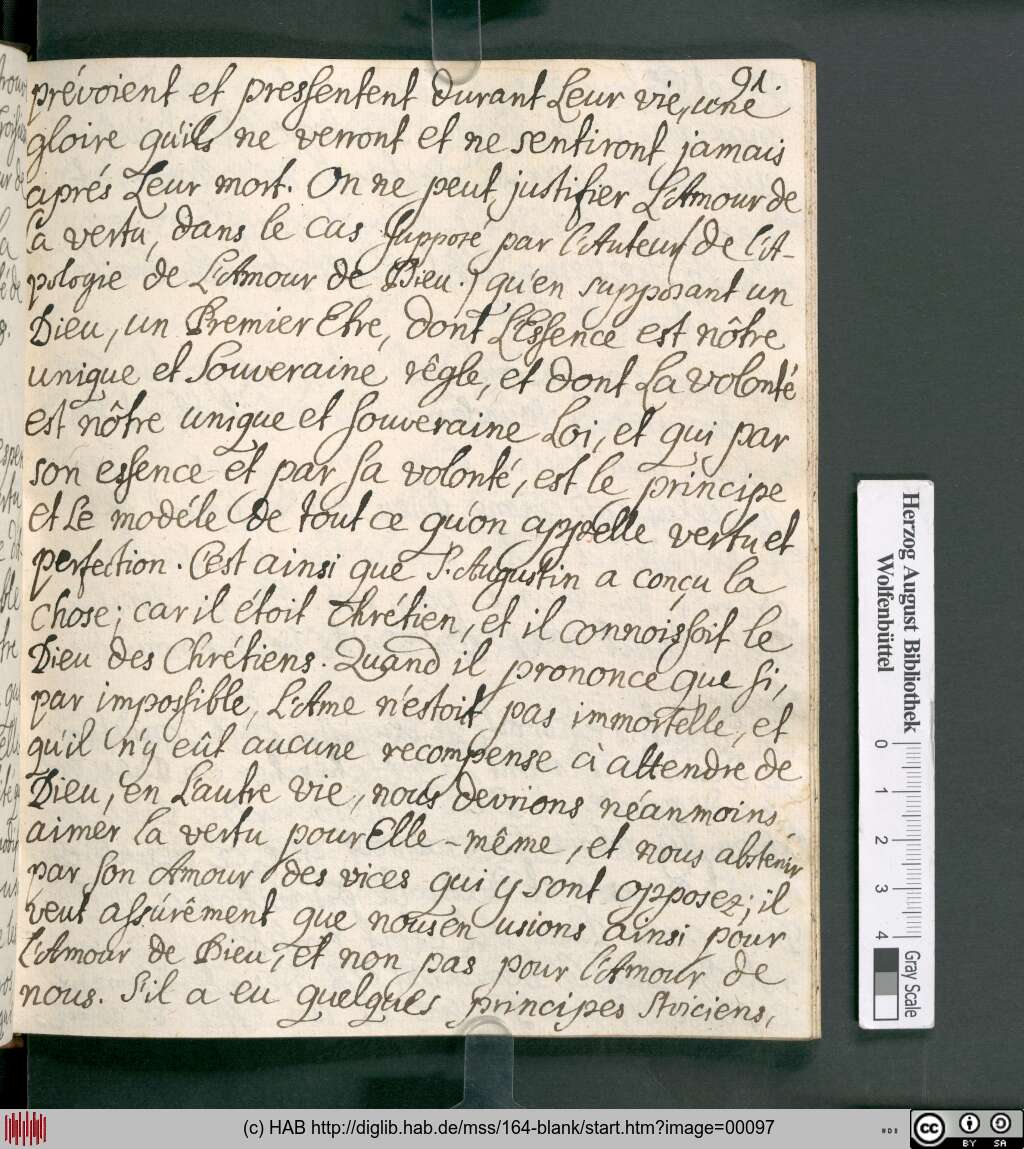 91.
prévoient et pressentent durant Leur vie, une
gloire qu'ils ne verront et ne sentiront jamais
aprés Leur mort. On ne peut justifier L'Amour de
la vertu, dans le cas supposé par l'Auteur (de l'A-
pologie de L'Amour de Dieu.) qu'en supposant un
Dieu, un Premier Etre, dont L'Essence est nôtre
unique et Souveraine rêgle, et dont La volonté
est nôtre unique et souveraine Loi, et qui par
son essence et par sa volonté, est le principe
et Le modéle de tout ce qu'on appelle vertu et
perfection. C'est ainsi que S. Augustin a conçu la
Chose; car il étoit Chrétien, et il connoissoit le
Dieu des Chrétiens. Quand il prononce que si,
par impossible, L'Ame n'estoit pas immortelle, et
qu'il n'y eût aucune recompense à attendre de
Dieu, en L'autre vie, nous devrions néanmoins
aimer la vertu pour Elle-même, et nous abstenir
par son Amour des vices qui y sont opposez; il
veut assurêment que nous en usions ainsi pour
L'Amour de Dieu, et non pas pour l'Amour de
nous. S'il a eu quelques principes Stoiciens,
Herzog August Bibliothek
Wolfenbüttel
0 1 2 3 4
Gray Scale
(c) HAB http://diglib.hab.de/mss/164-blank/start.htm?image=00097
cc BY SA